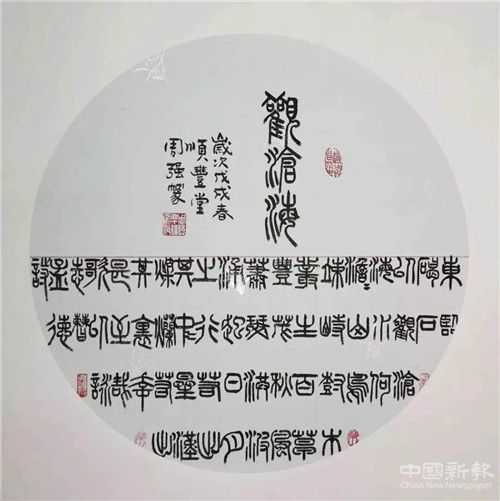 觀滄海
歲次戊戌春
順豐堂
周强篆
東臨
碣石
以觀滄
海水何
澹〻山島
竦峙樹木
叢生百草
豐茂秋風
蕭瑟洪波
涌起日月
之行若出
其中星漢
燦爛若出
其裏幸
甚至哉
歌以詠
志曹
孟德
詩
中國新報
China New Newspaper